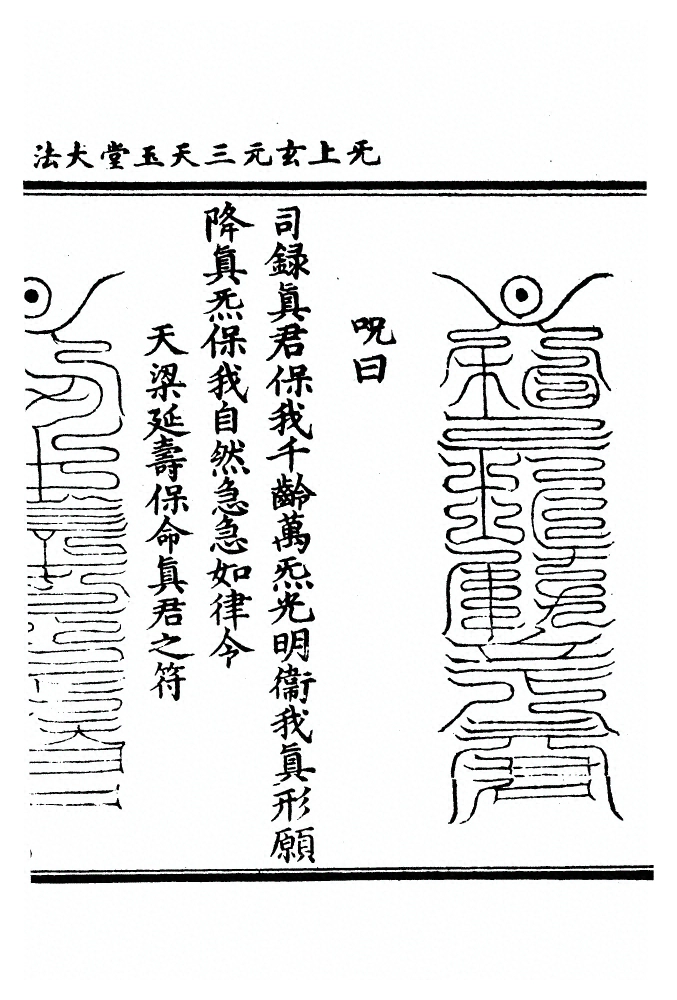 无上玄元三天玉堂大法
呪曰
司録眞君保我千齡萬炁光明衞我眞形願
降眞炁保我自然急急如律令
天梁延壽保命眞君之符